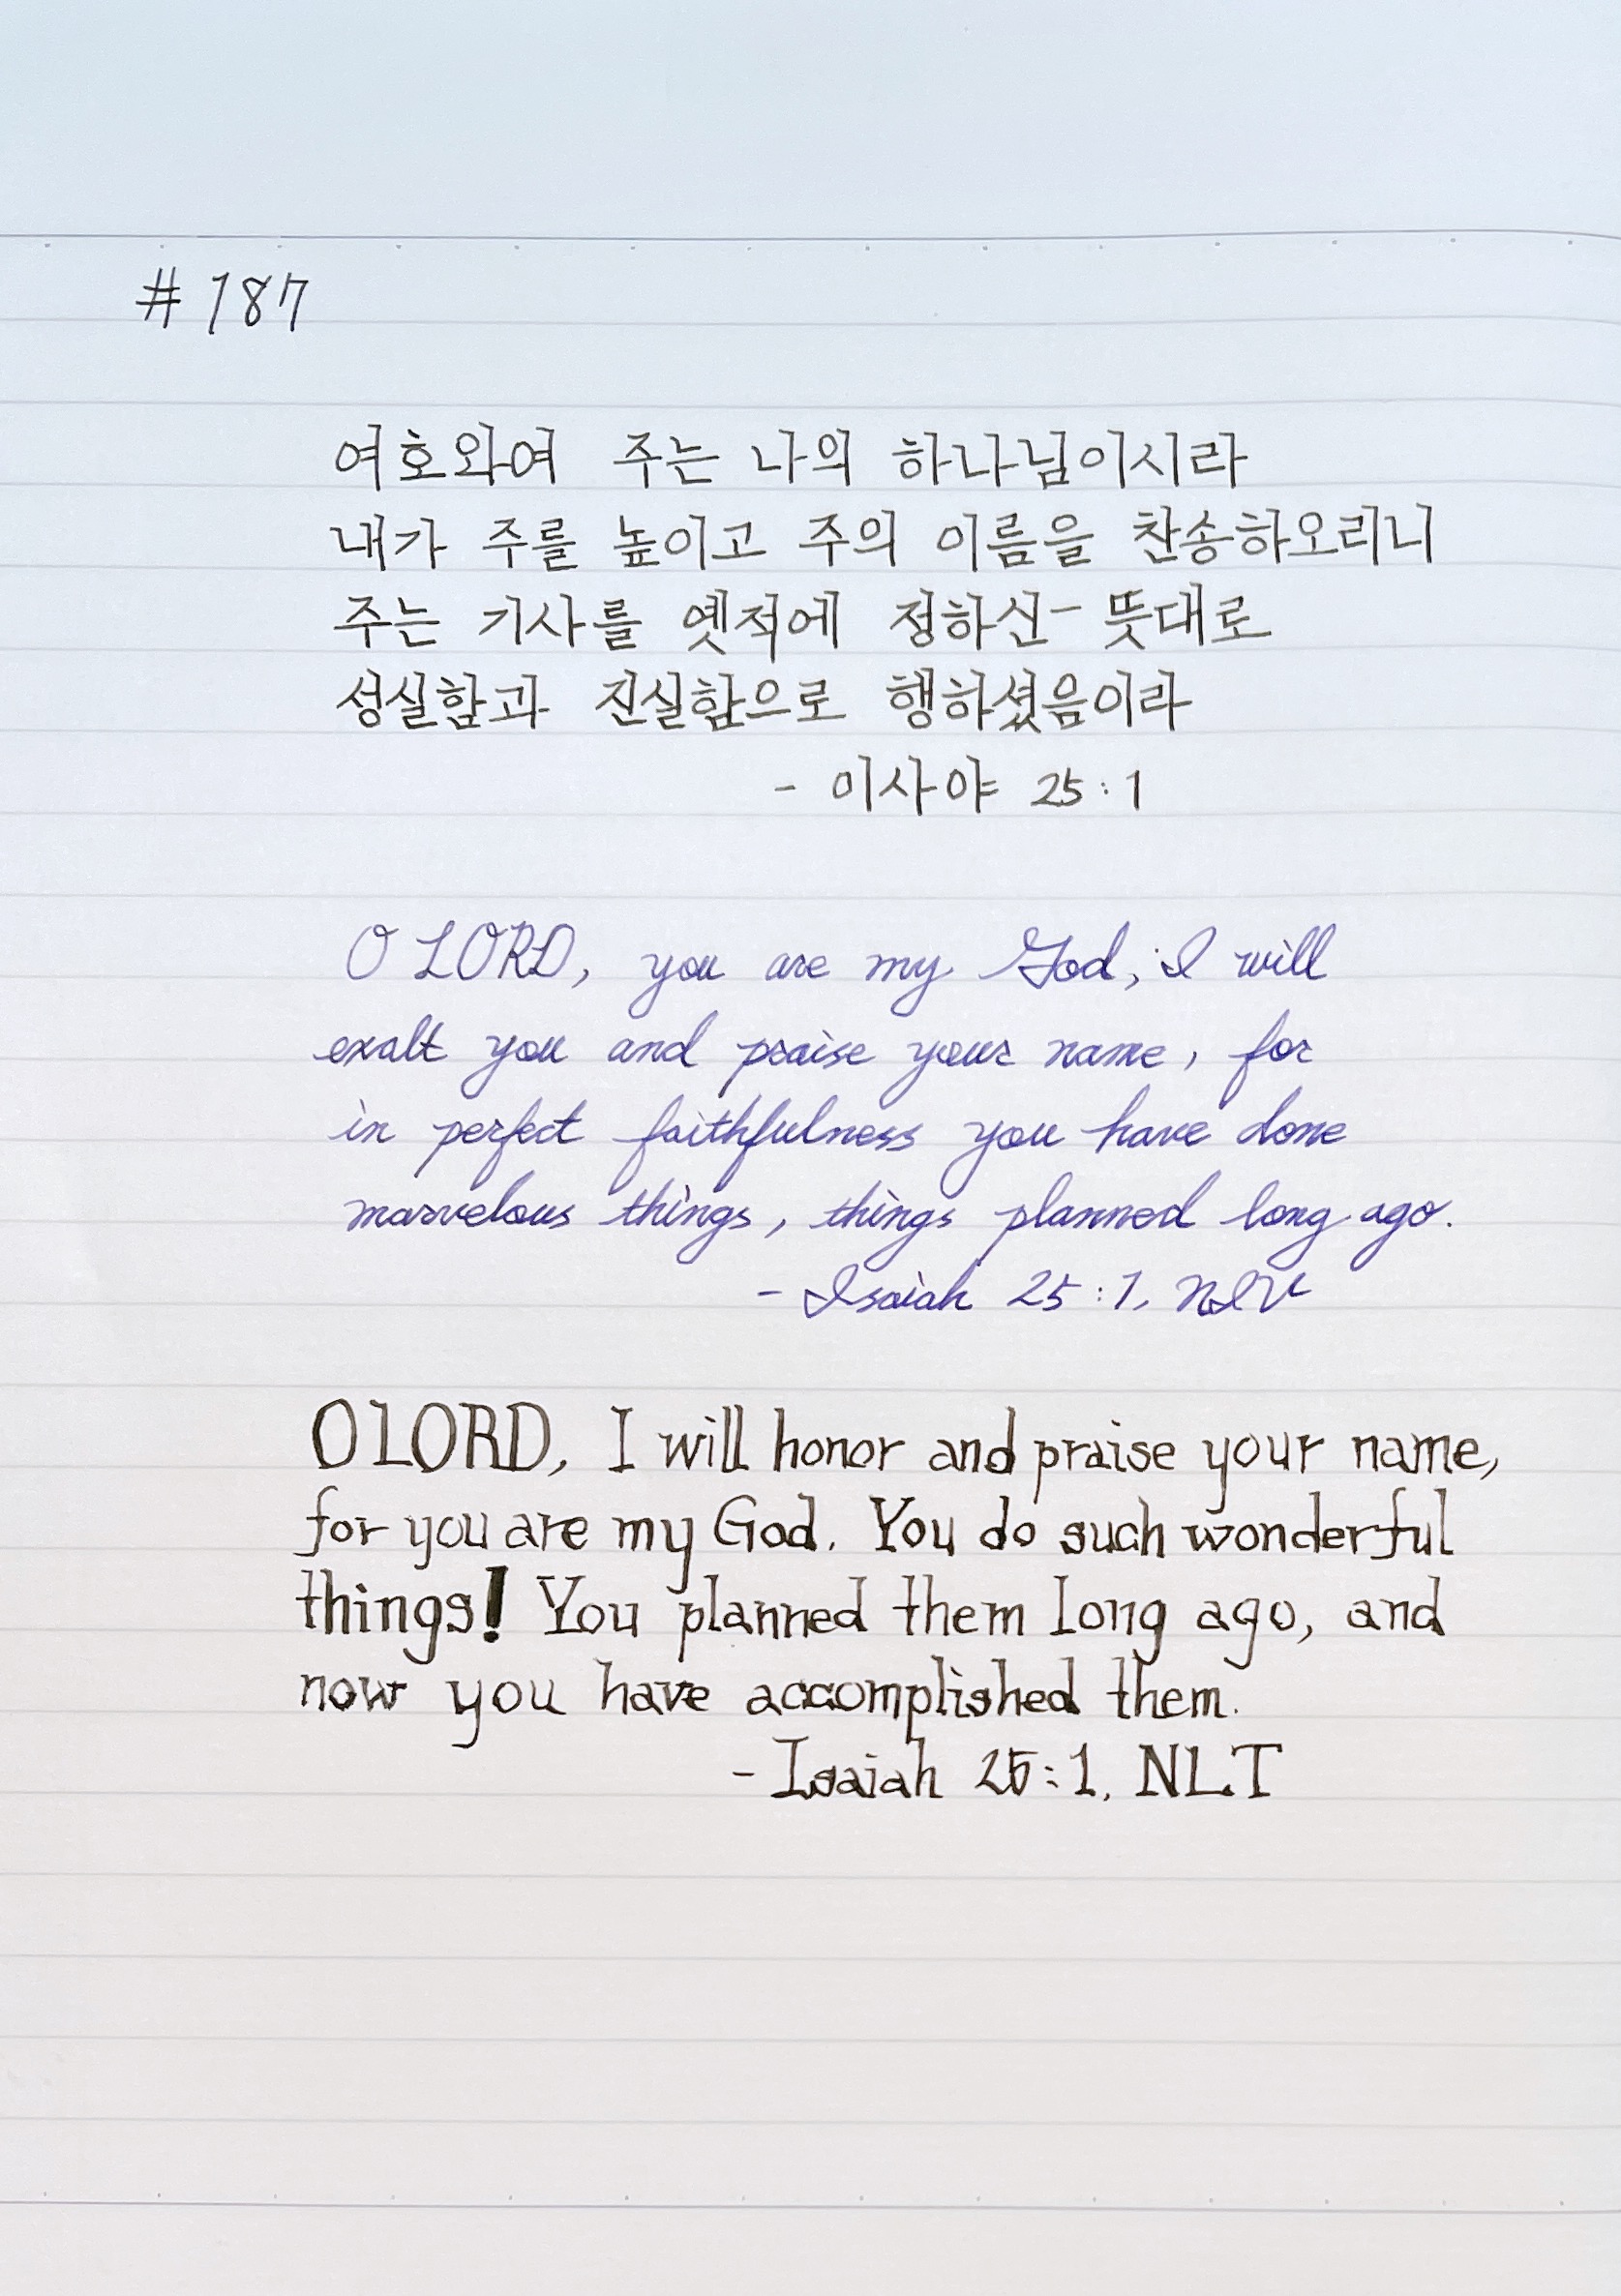 # 187
여호와여 주는 나의 하나님이시라
내가 주를 높이고 주의 이름을 찬송하오리니
주는 기사를 옛적에 정하신 뜻대로
성실함과 진실함으로 행하셨음이라
- 이사야 25:1
O LORD, you are my God, I will
exalt you and praise your name, for
in perfect faithfulness you have done
marvelous things, things planned long ago.
- Isaiah 25:1, NIV
O LORD, I will honor and praise your name,
for you are my God. You do such wonderful
things! You planned them long ago, and
now you have accomplished them.
- Isaiah 25:1, NLT